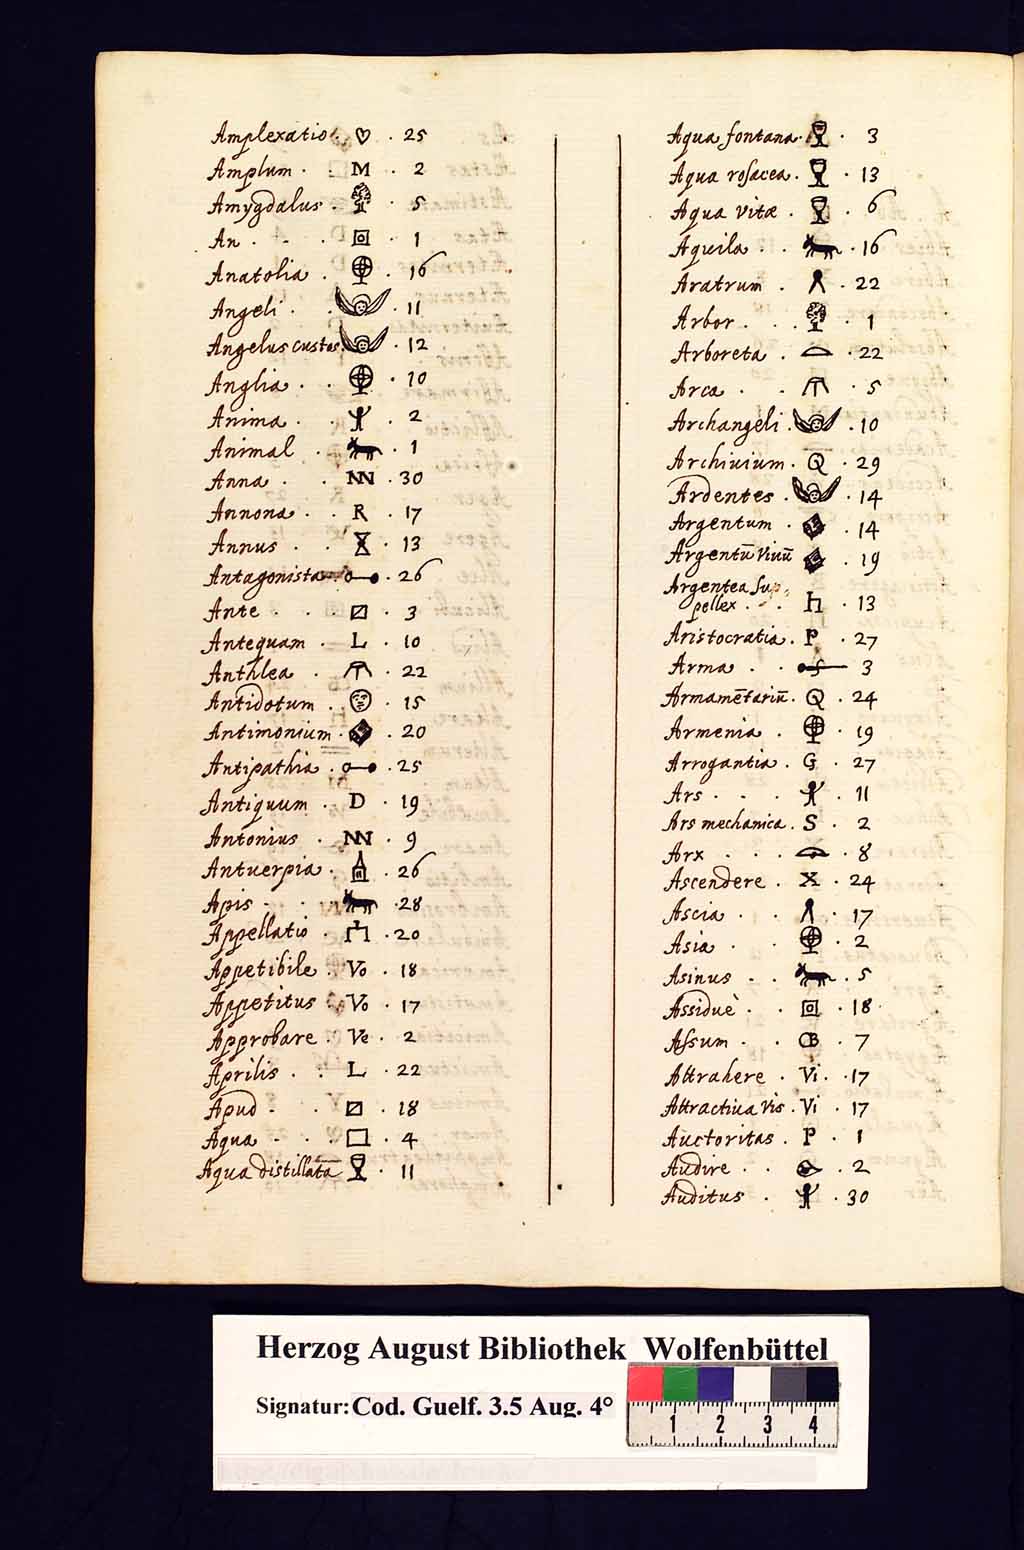 Amplexatio · ♡ · 25
Amplum · M · 2
Amygdalus · 5
An · 1
Anatolia · 16
Angeli · 11
Angelus custos · 12
Anglia · 10
Anima · 2
Animal · 1
Anna · NN · 30
Annona · R · 17
Annus · 13
Antagonista · 26
Ante · 3
Antequam · L · 10
Anthlea · 22
Antidotum · 15
Antimonium · 20
Antipathia · 25
Antiquum · D · 19
Antonius · NN · 9
Antuerpia · 26
Apis · 28
Appellatio · 20
Appetibile · Vo · 18
Appetitus · Vo · 17
Approbare · Ve · 2
Aprilis · L · 22
Apud · 18
Aqua · 4
Aqua distillata · 11
Aqua fontana · 3
Aqua rosacea · 13
Aqua vitæ · 6
Aquila · 16
Aratrum · 22
Arbor · 1
Arboreta · 22
Arca · 5
Archangeli · 10
Archiuium · Q · 29
Ardentes · 14
Argentum · 14
Argentū viuū · 19
Argentea Sup-
pellex · 13
Aristocratia · P · 27
Arma · 3
Armamētariū · Q · 24
Armenia · 19
Arrogantia · G · 27
Ars · 11
Ars mechanica · S · 2
Arx · 8
Ascendere · X · 24
Ascia · 17
Asia · 2
Asinus · 5
Assiduè · 18
Assum · 7
Attrahere · Vi · 17
Attractiua vis · Vi · 17
Auctoritas · P · 1
Audire · 2
Auditus · 30
Herzog August Bibliothek Wolfenbüttel
Signatur: Cod. Guelf. 3.5 Aug. 4°
1 2 3 4